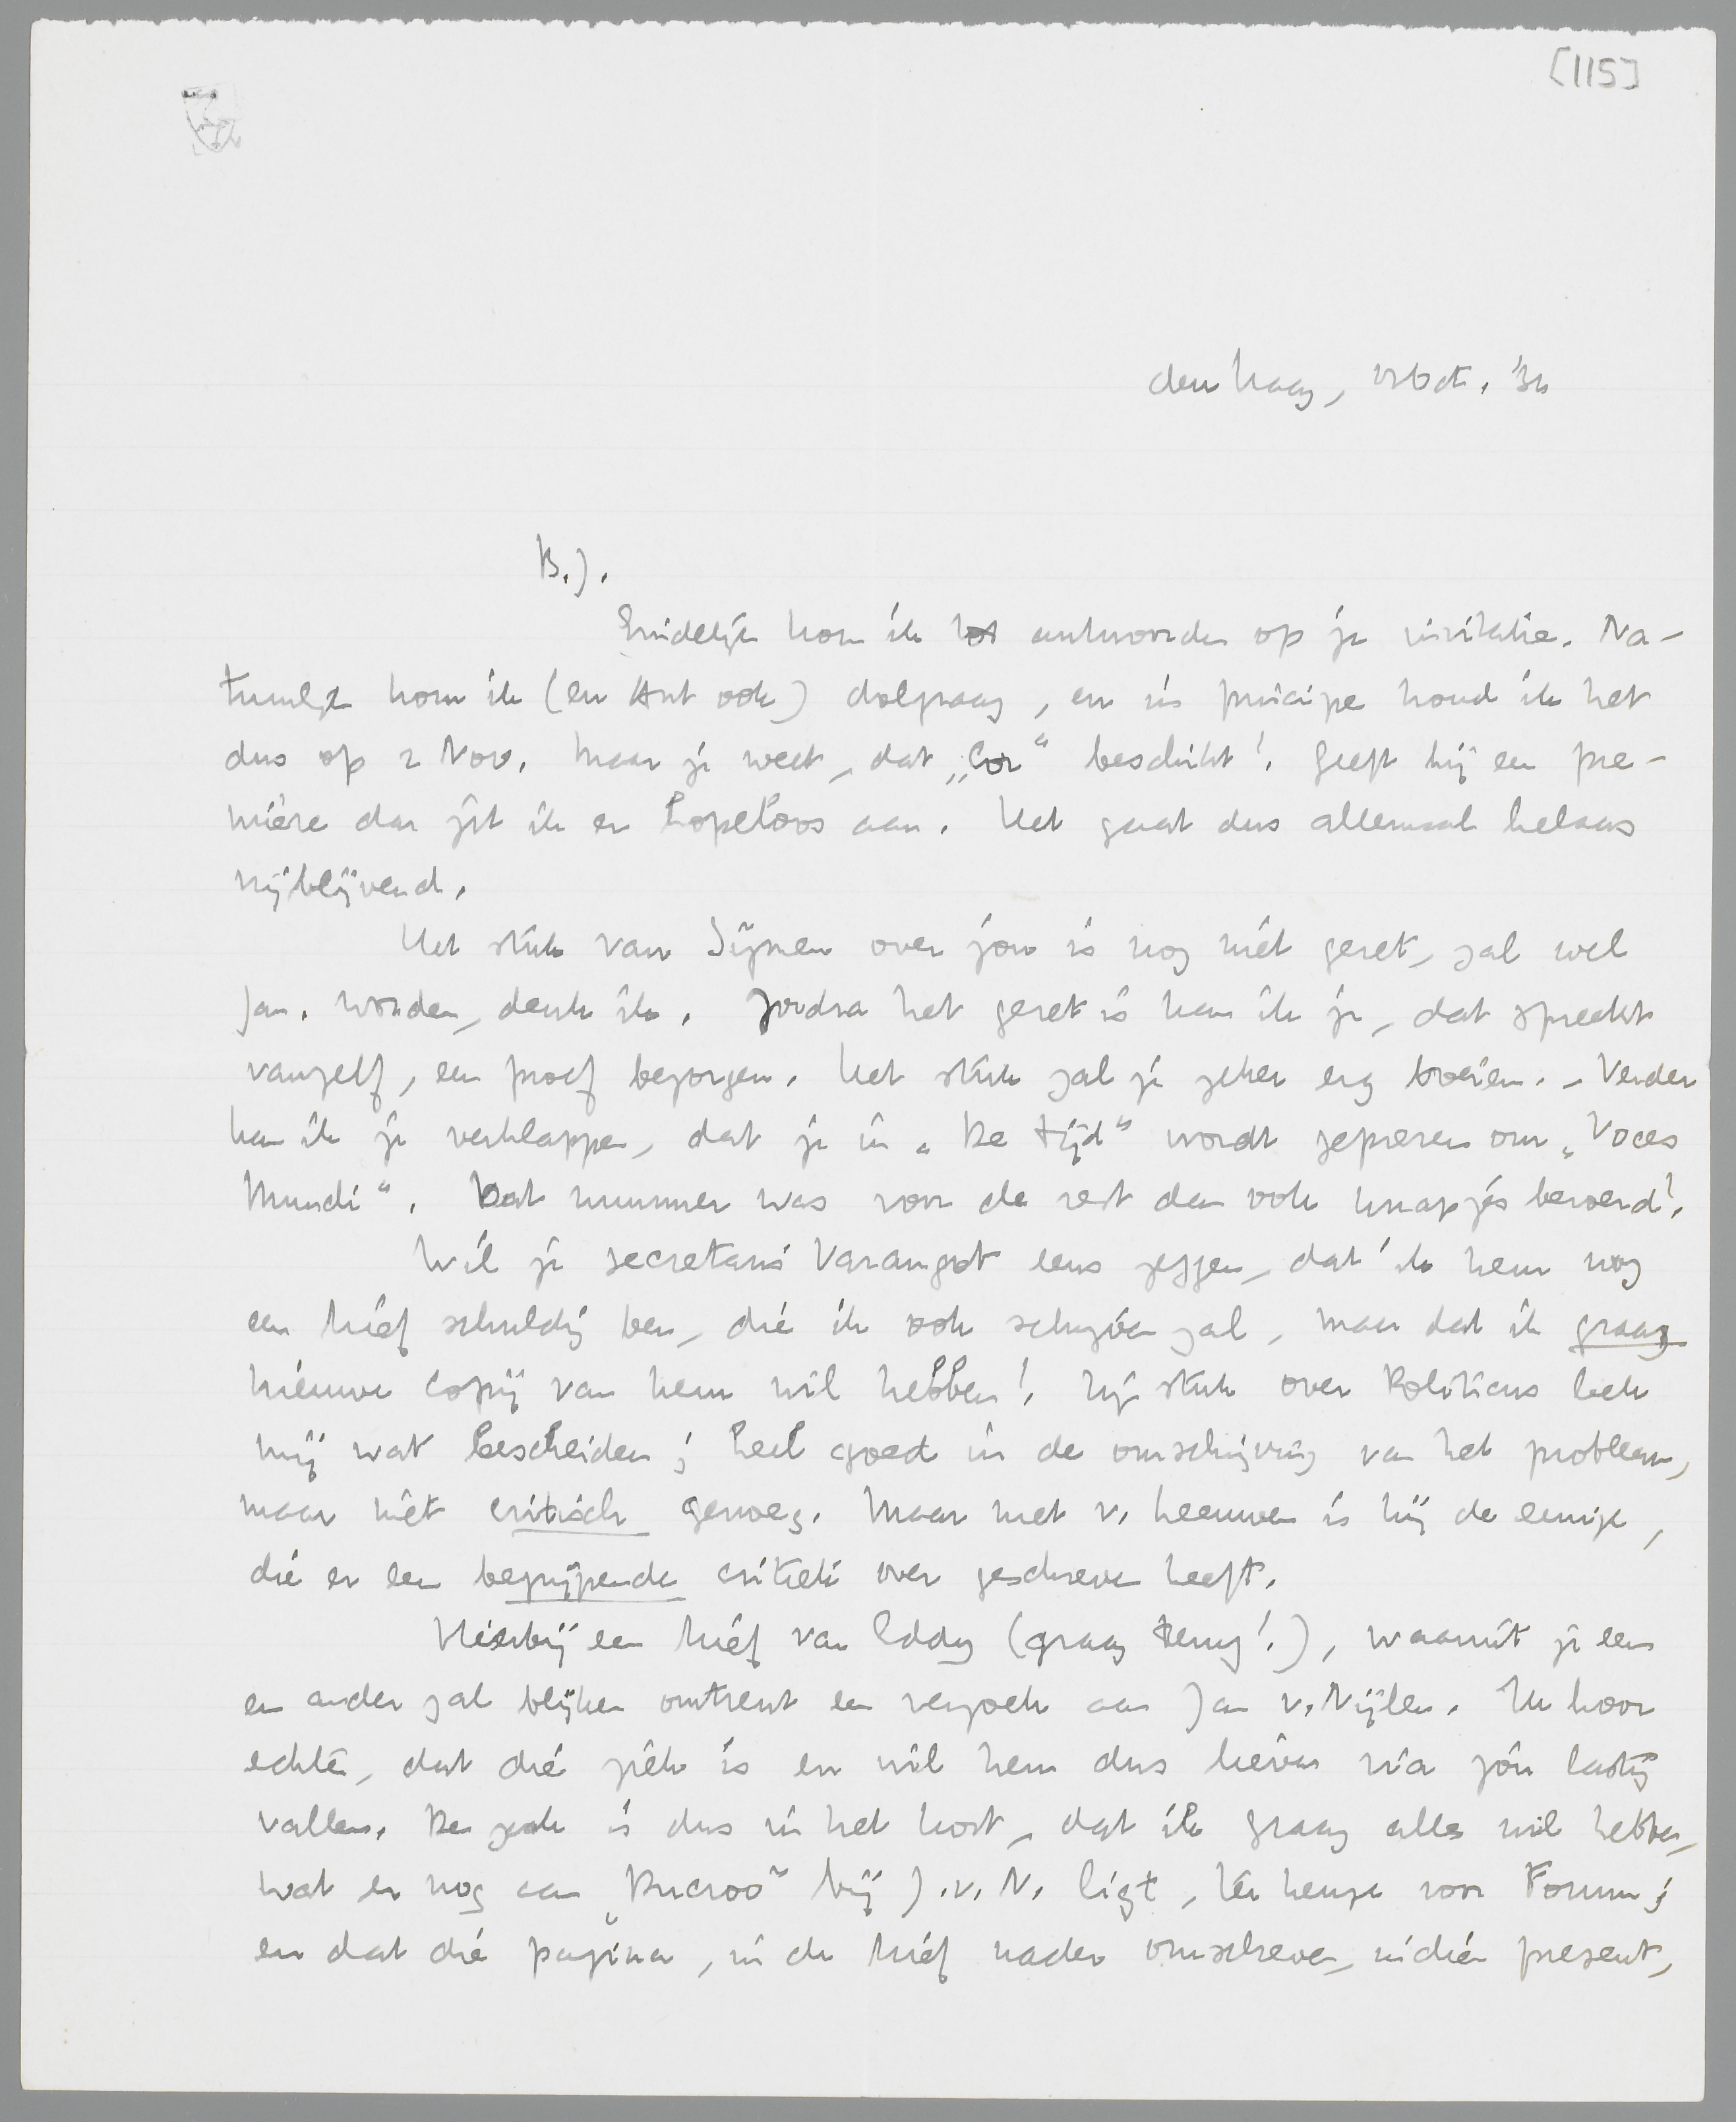 [115]
den Haag, Oct. '34
B.J.
Eindelijk kom ik tot antwoorden op je invitatie. Na-
tuurlijk kom ik (en Ant ook) dolgraag, en in principe houd ik het
dus op 2 Nov. Maar je weet, dat „Cor" beschikt! Geeft hij een pre-
mière dan zit ik er hopeloos aan. Het gaat dus allemaal helaas
vrijblijvend.
Het stuk van Sijmen over jou is nog niet gezet, zal wel
Jan. worden, denk ik. Zoodra het gezet is kan ik je, dat spreekt
vanzelf, een proef bezorgen. Het stuk zal je zeker erg boeien. – Verder
kan ik je verklappen, dat je in „De Tijd" wordt geprezen om „Voces
Mundi". Dat nummer was voor de rest dan ook knapjes beroerd!
Wil je secretaris Varangot eens zeggen, dat ik hem nog
een brief schuldig ben, die ik ook schrijven zal, maar dat ik graag
nieuwe copij van hem wil hebben! Zijn stuk over Politicus leek
mij wat bescheiden; heel goed in de omschrijving van het probleem,
maar niet critisch genoeg. Maar met v. Leeuwen is hij de eenige,
die er een begrijpende critiek over geschreven heeft.
Hierbij een brief van Eddy (graag terug!), waaruit je een
en ander zal blijken omtrent een verzoek aan Jan v. Nijlen. Ik hoor
echter, dat die ziek is en wil hem dus liever via jou lastig
vallen. De zaak is dus in het kort, dat ik graag alles wil hebben,
wat er nog aan „Ducroo" bij J.v.N. ligt, ter keuze voor Forum;
en dat die pagina, in den brief nader omschreven, indien present,